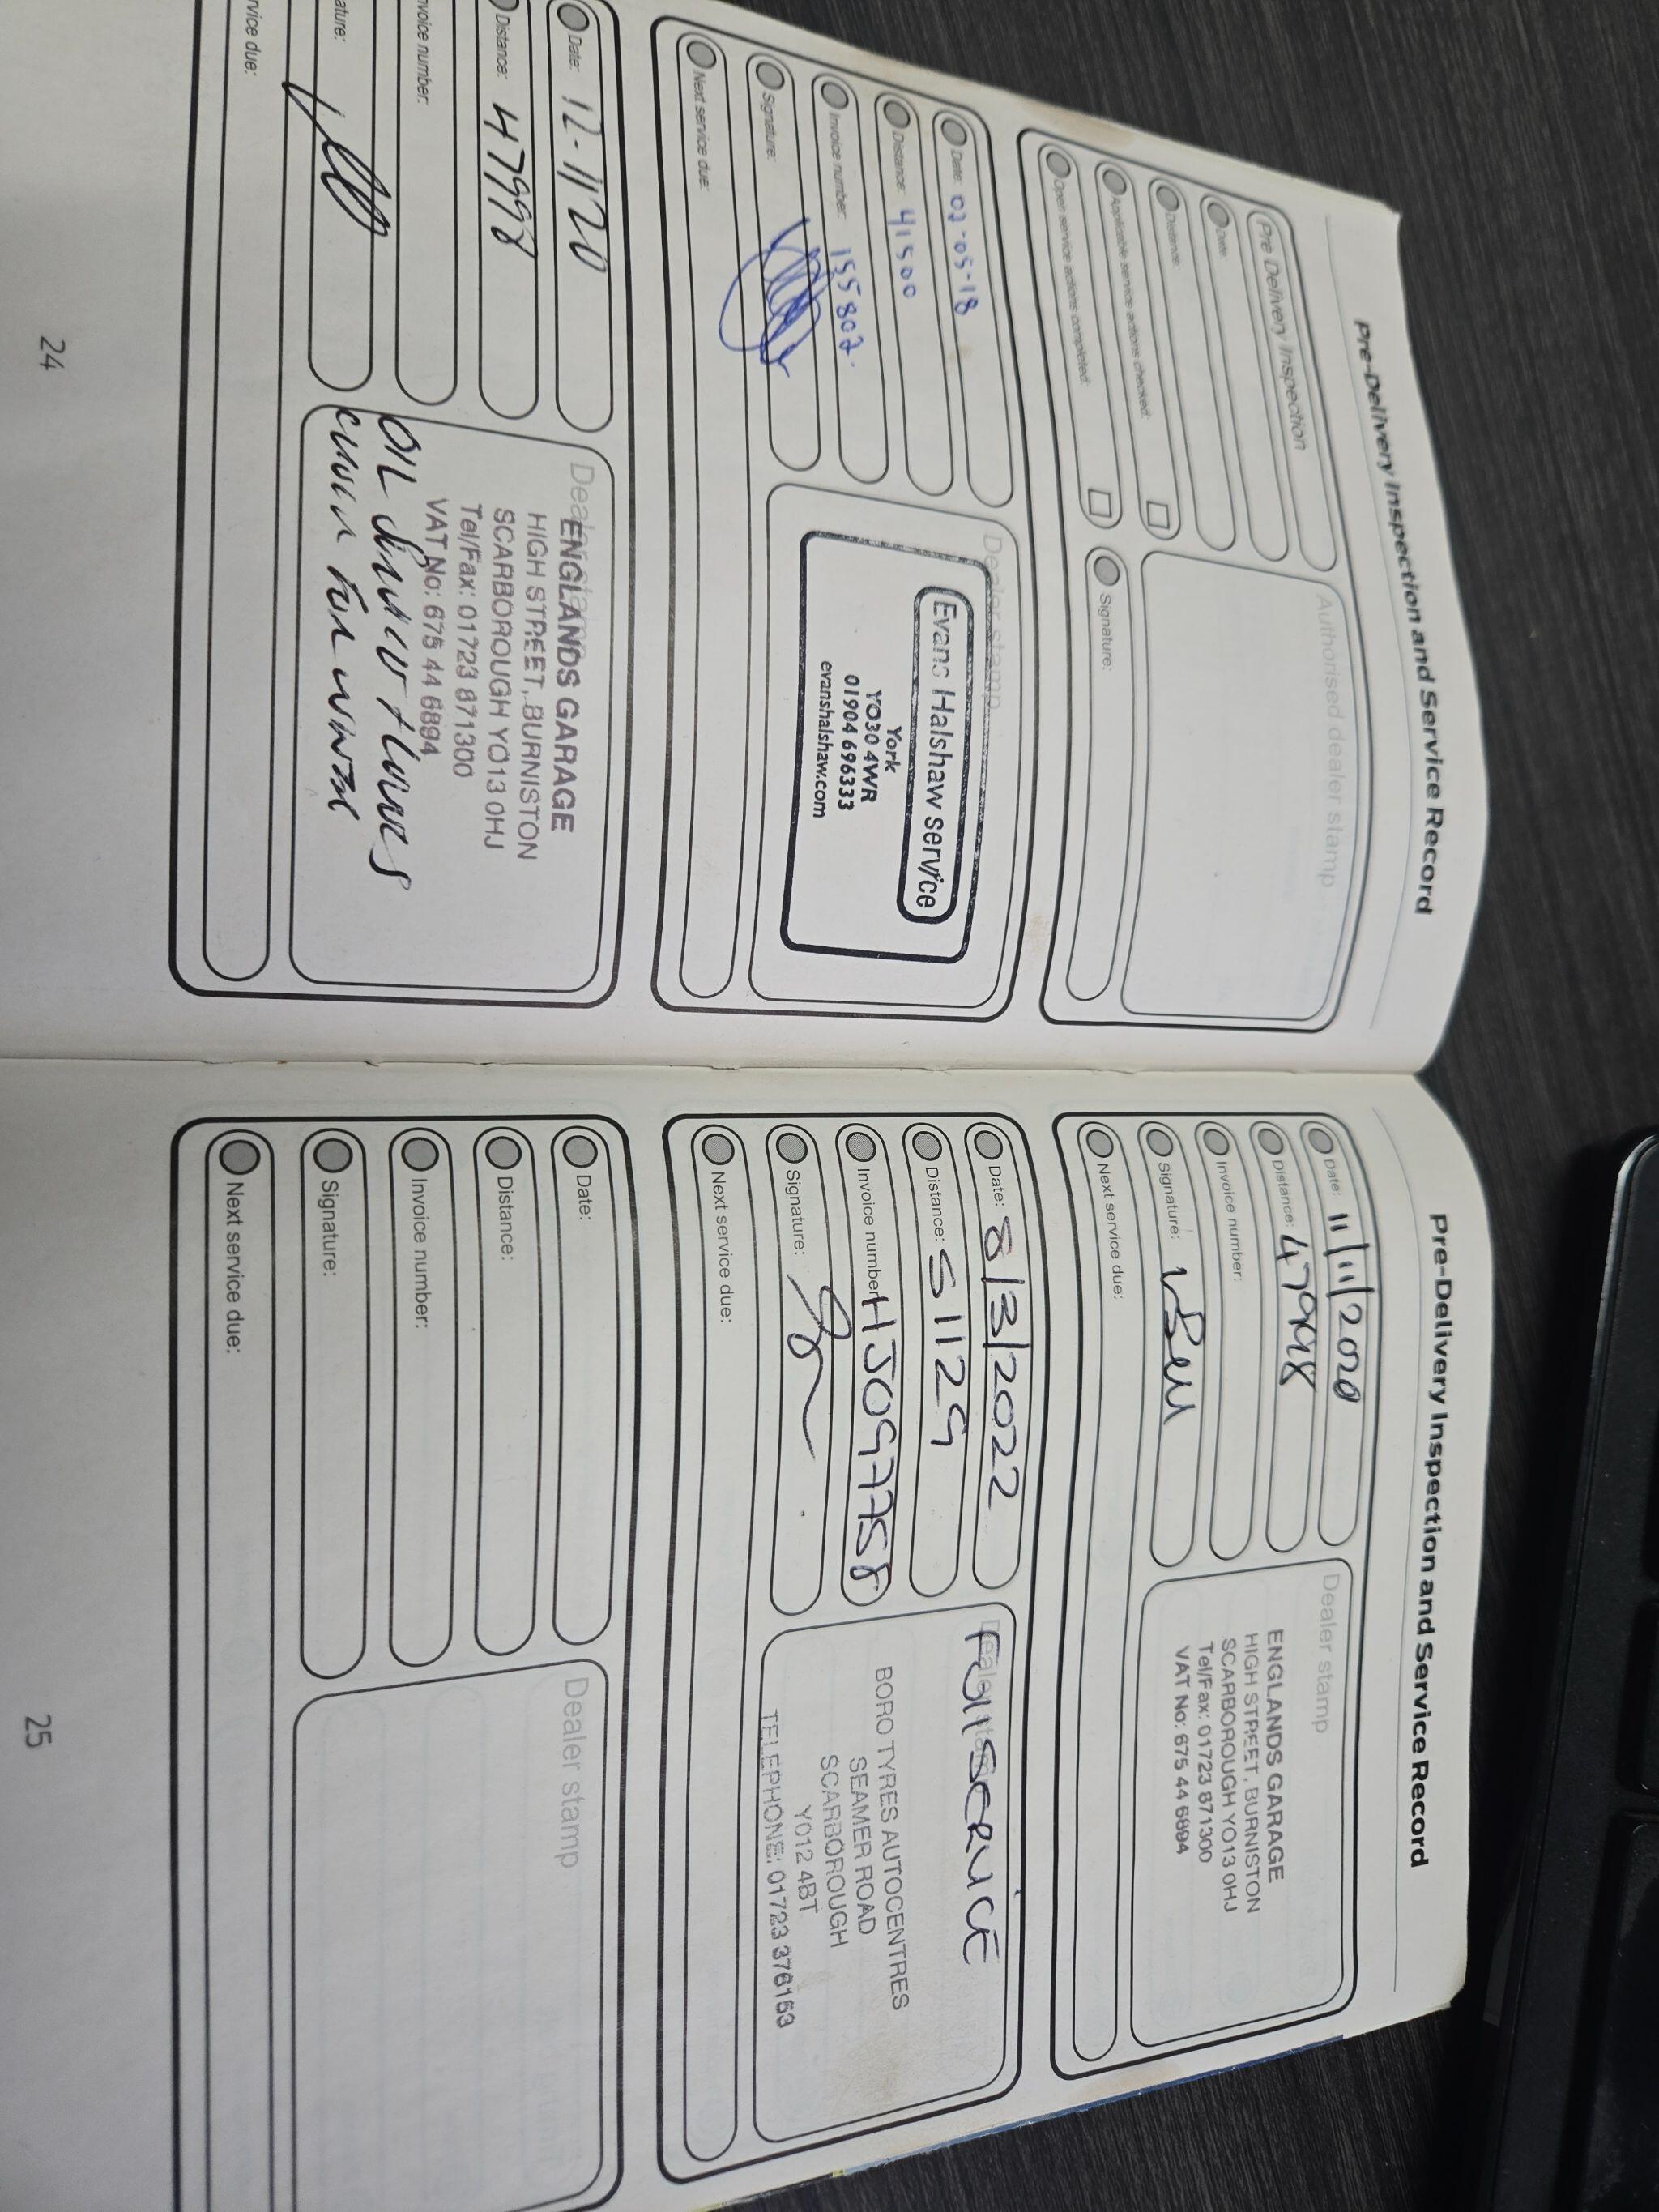 Pre-Delivery Inspection and Service Record
Pre Delivery Inspection
Authorised dealer stamp
Date:
Distance:
Applicable service actions checked:
Open service actions completed:
Signature:
Date: 02-05-18
Dealer stamp
Distance: 41500
Invoice number: 155802.
Signature:
Next service due:
Evans Halshaw service
York
YO30 4WR
01904 696333
evanshalshaw.com
Date: 12-11/20
Dealer stamp
Distance: 47998
voice number:
ature:
rvice due:
ENGLANDS GARAGE
HIGH STREET, BURNISTON
SCARBOROUGH YO13 0HJ
Tel/Fax: 01723 871300
VAT No: 675 44 6894
OIL
FOR
24
Pre-Delivery Inspection and Service Record
Date: 11/11/2020
Dealer stamp
Distance: 47998
Invoice number:
Signature:
Next service due:
ENGLANDS GARAGE
HIGH STREET, BURNISTON
SCARBOROUGH YO13 0HJ
Tel/Fax: 01723 871300
VAT No: 675 44 6894
Date: 8/3/2022
Dealer stamp
Distance: 51129
Invoice number: HJ097758
Signature:
Next service due:
Full SERVICE
BORO TYRES AUTOCENTRES
SEAMER ROAD
SCARBOROUGH
YO12 4BT
TELEPHONE: 01723 376153
Date:
Dealer stamp
Distance:
Invoice number:
Signature:
Next service due:
25